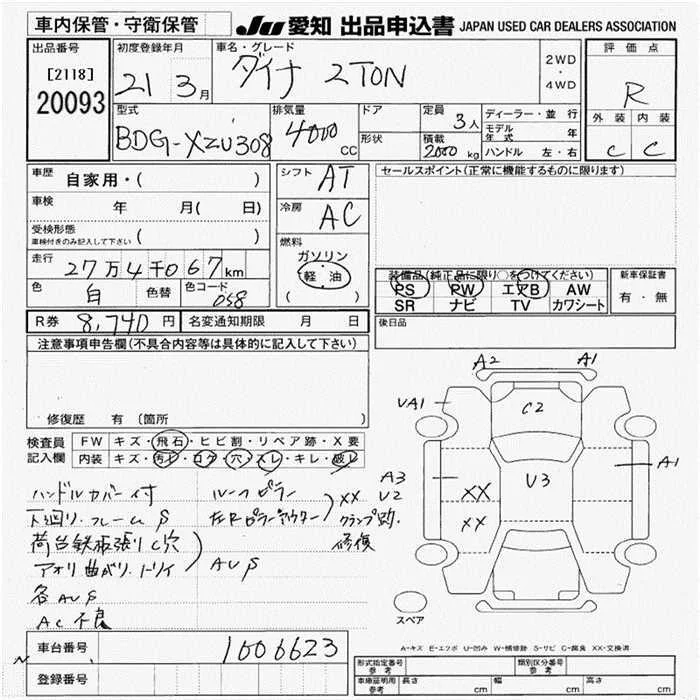 車内保管・守衛保管 JU 愛知 出品申込書 JAPAN USED CAR DEALERS ASSOCIATION
出品番号 [2118] 20093
初度登録年月 21 3月
車名・グレード ダイナ 2TON
2WD・4WD
評価点 R
外装 内装
C C
型式 BDG-XZU308
排気量 4000 CC
ドア
形状
定員 3人
積載 2000 kg
ディーラー・並行
モデル年式 年
ハンドル 左・右
車歴 自家用・( )
車検 年 月( 日)
受検形態 ( )
車検付きのみ記入して下さい
走行 27万4千067km
色 白 色替 色コード 058
シフト AT
冷房 AC
燃料
ガソリン
軽油
( )
セールスポイント(正常に機能するものに限ります)
装備品(純正品に限り○をつけてください)
PS PW エアB AW
SR ナビ TV カワシート
新車保証書
有・無
後日品
R券 8,740円 名変通知期限 月 日
注意事項申告欄(不具合内容等は具体的に記入して下さい)
修復歴 有 〔箇所 〕
検査員記入欄
FW キズ・飛石・ヒビ割・リペア跡・X要
内装 キズ・汚レ・コゲ・穴・スレ・キレ・破レ
ハンドルカバー付
下廻り.フレームS
荷台鉄板張りC穴
アオリ曲がり.トリイ
AUS
各AUS
AC不良
ルーフピラー
左Rピラーアウター
XX
クランプ跡.
修復
A2 A1
UA1
C2
A1
A3
U2
XX
XX
U3
スペア
A-キズ E-エクボ U-凹み W-補修跡 S-サビ C-腐食 XX-交換済
車台番号 1006623
登録番号
形式指定番号 参考 類別区分番号 参考
車庫証明用 参考 長さ cm 幅 cm 高さ cm